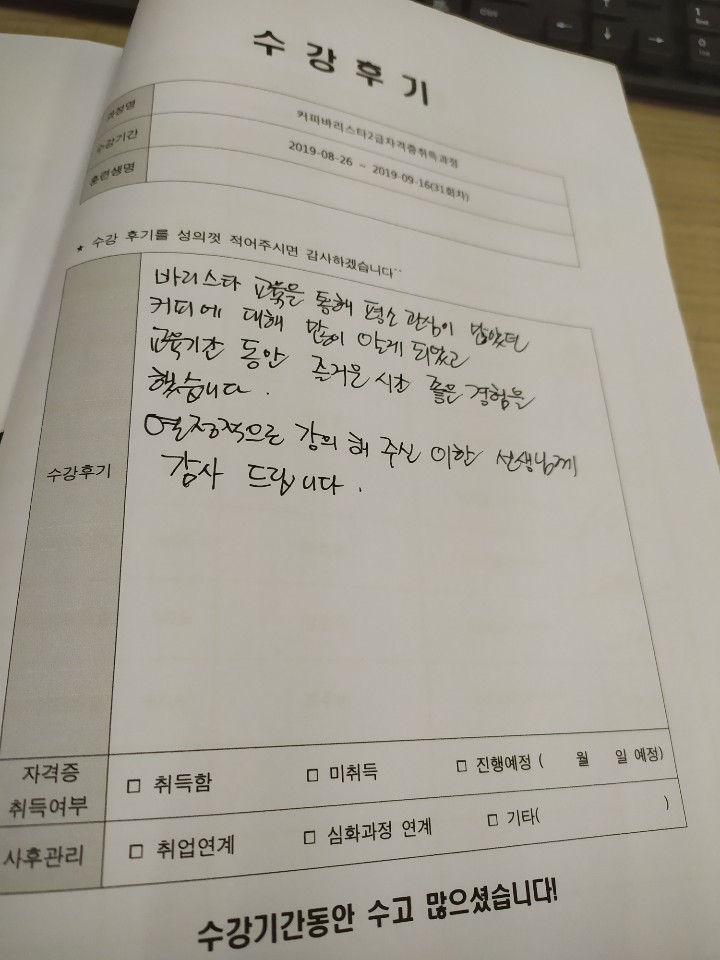 수강후기
과정명 커피바리스타2급자격증취득과정
수강기간 2019-08-26 ~ 2019-09-16(31회차)
훈련생명
★ 수강 후기를 성의껏 적어주시면 감사하겠습니다^^
바리스타 교육을 통해 평소 관심이 많았던
커피에 대해 많이 알게 되었고
교육기간 동안 즐거운 시간 좋은 경험을
했습니다.
열정적으로 강의 해 주신 이한 선생님께
감사 드립니다.
수강후기
자격증 취득여부 □ 취득함 □ 미취득 □ 진행예정 ( 월 일 예정)
사후관리 □ 취업연계 □ 심화과정 연계 □ 기타( )
수강기간동안 수고 많으셨습니다!